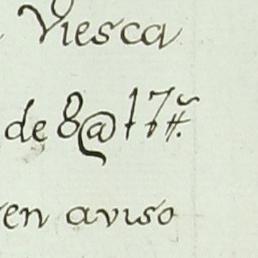 Viesca
de 8@17 #.
en aviso